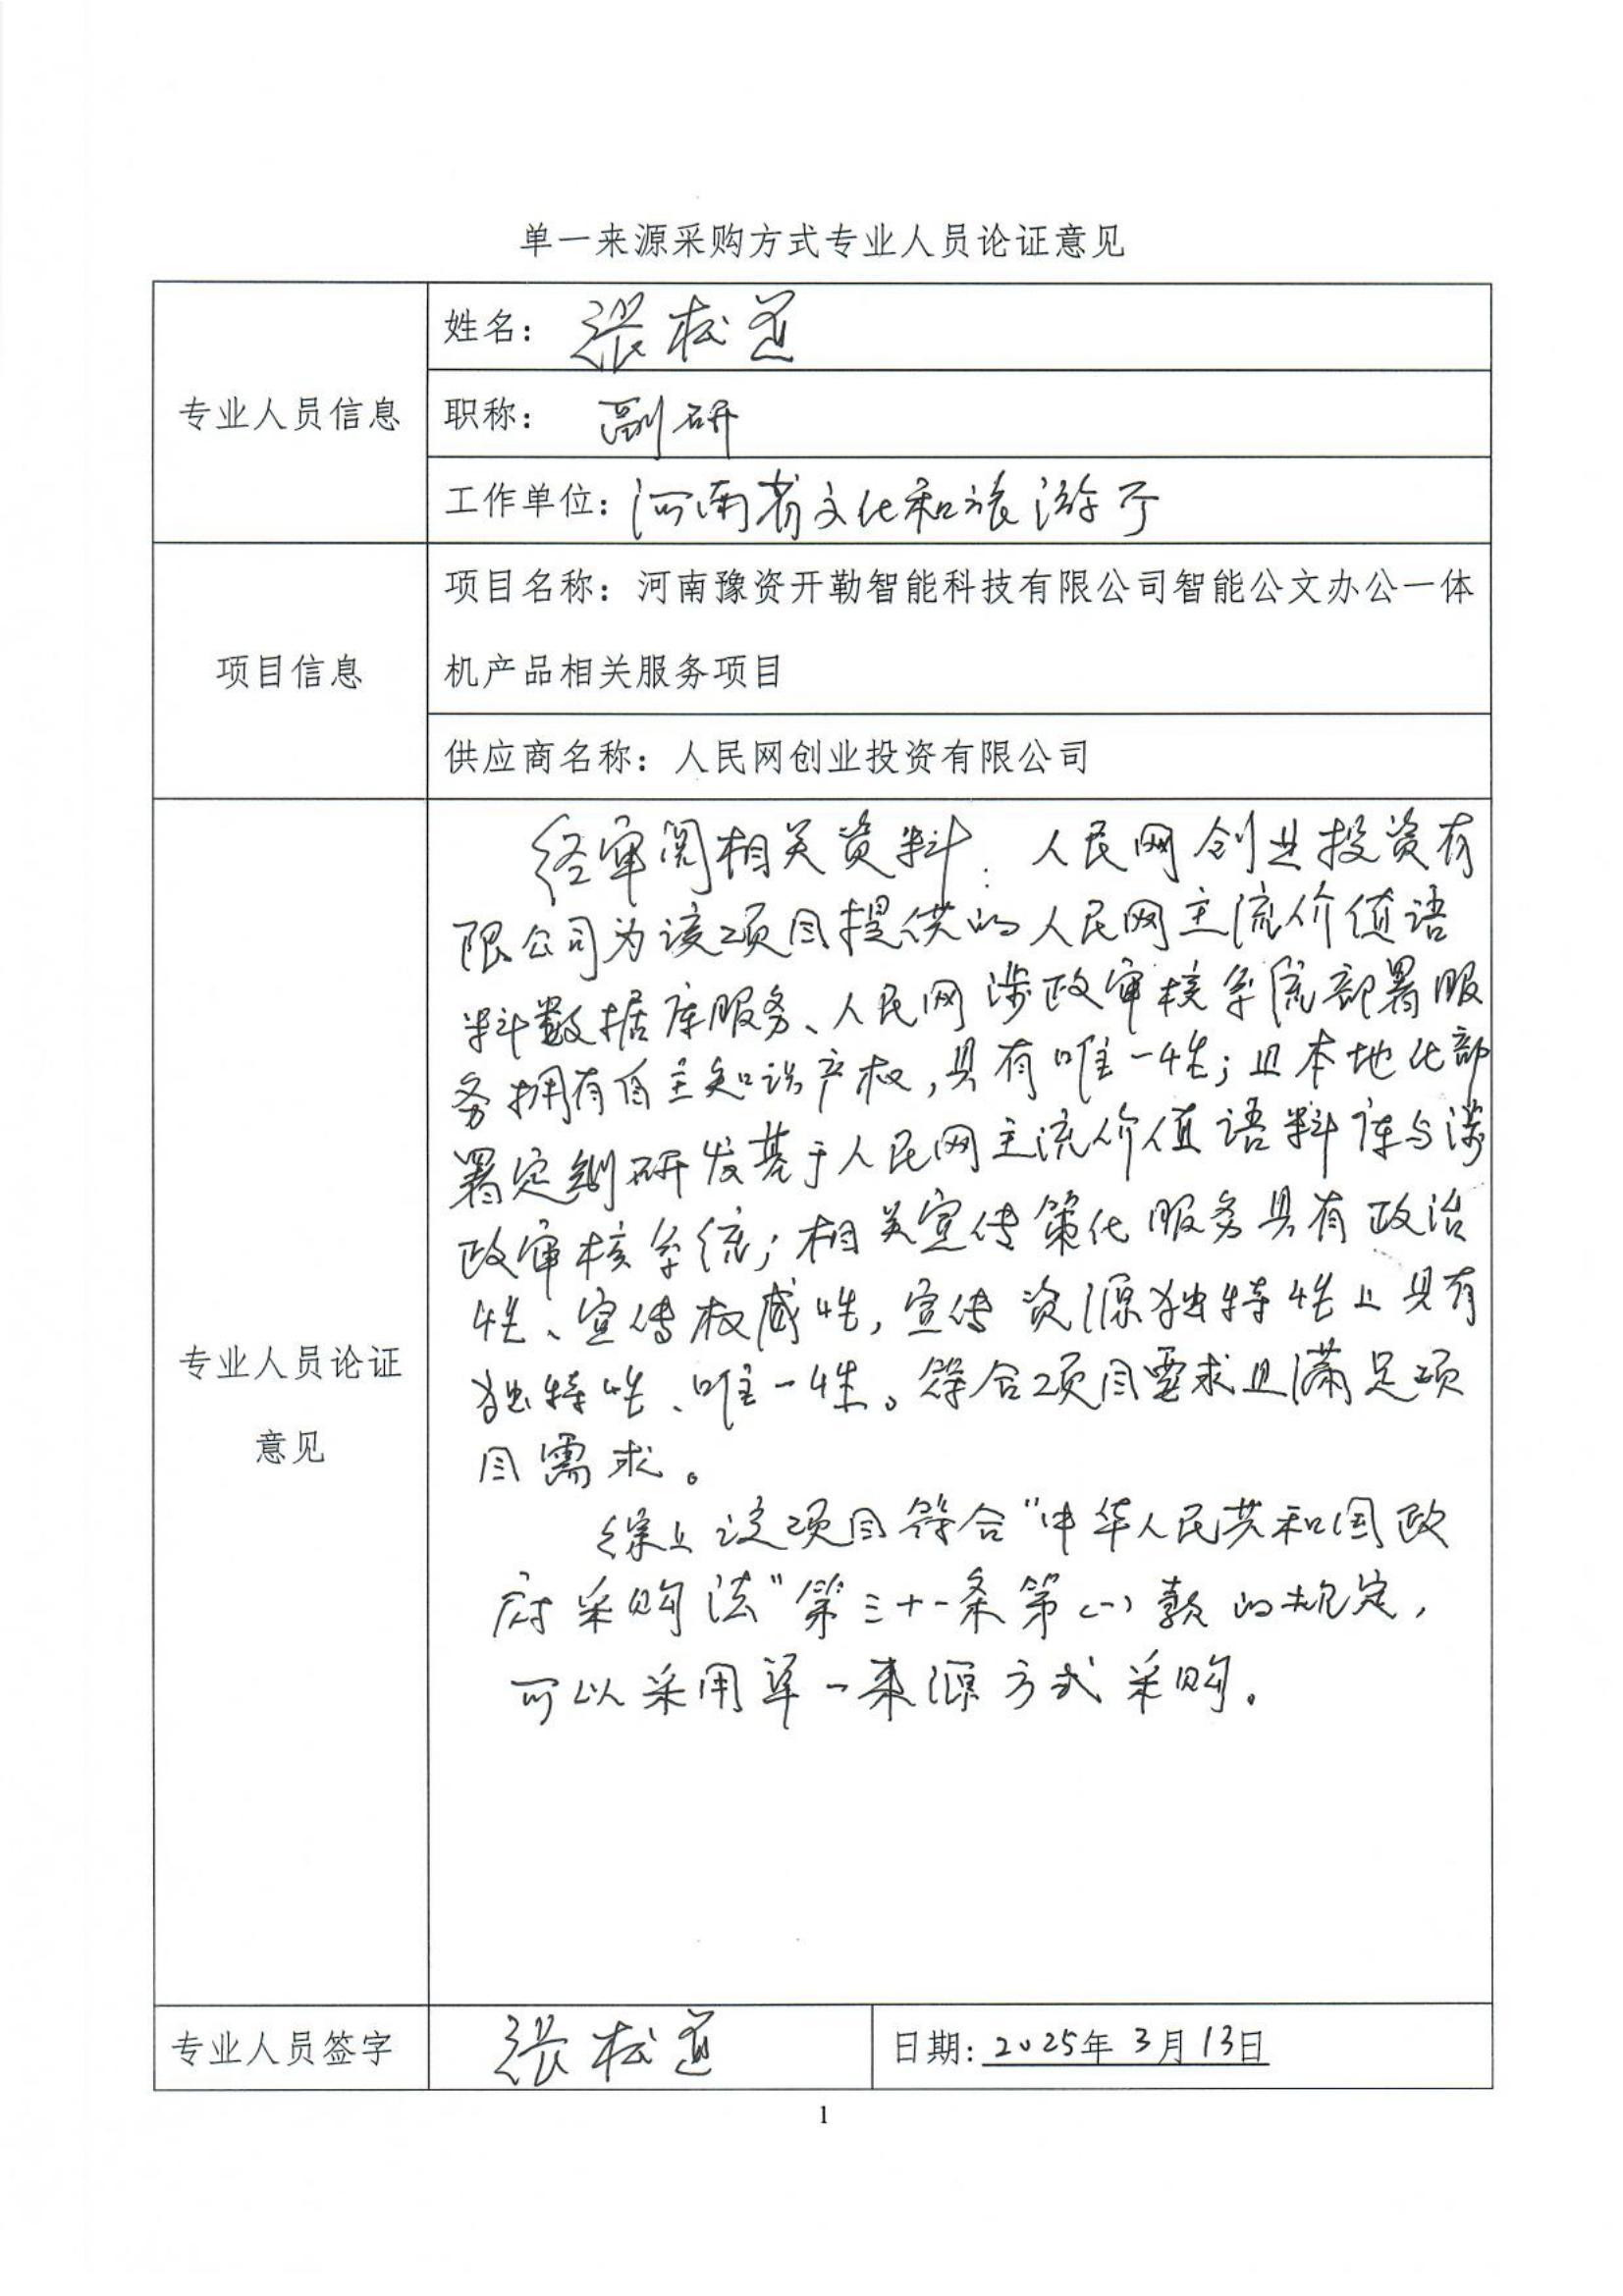 单一来源采购方式专业人员论证意见
专业人员信息
姓名： 张松
职称： 副研
工作单位：河南省文化和旅游厅
项目信息
项目名称：河南豫资开勒智能科技有限公司智能公文办公一体
机产品相关服务项目
供应商名称：人民网创业投资有限公司
专业人员论证
意见
经审阅相关资料：人民网创业投资有
限公司为该项目提供的人民网主流价值语
料数据库服务、人民网涉政审核系统部署服
务拥有自主知识产权，具有唯一性；且本地化部
署定制研发基于人民网主流价值语料库与涉
政审核系统；相关宣传策化服务具有政治
性、宣传权威性，宣传资源独特性上具有
独特性、唯一性。符合项目需求且满足项
目需求。
综上该项目符合“中华人民共和国政
府采购法”第三十一条第（一）款的规定，
可以采用单一来源方式采购。
专业人员签字
张松
日期：2025年3月13日
1